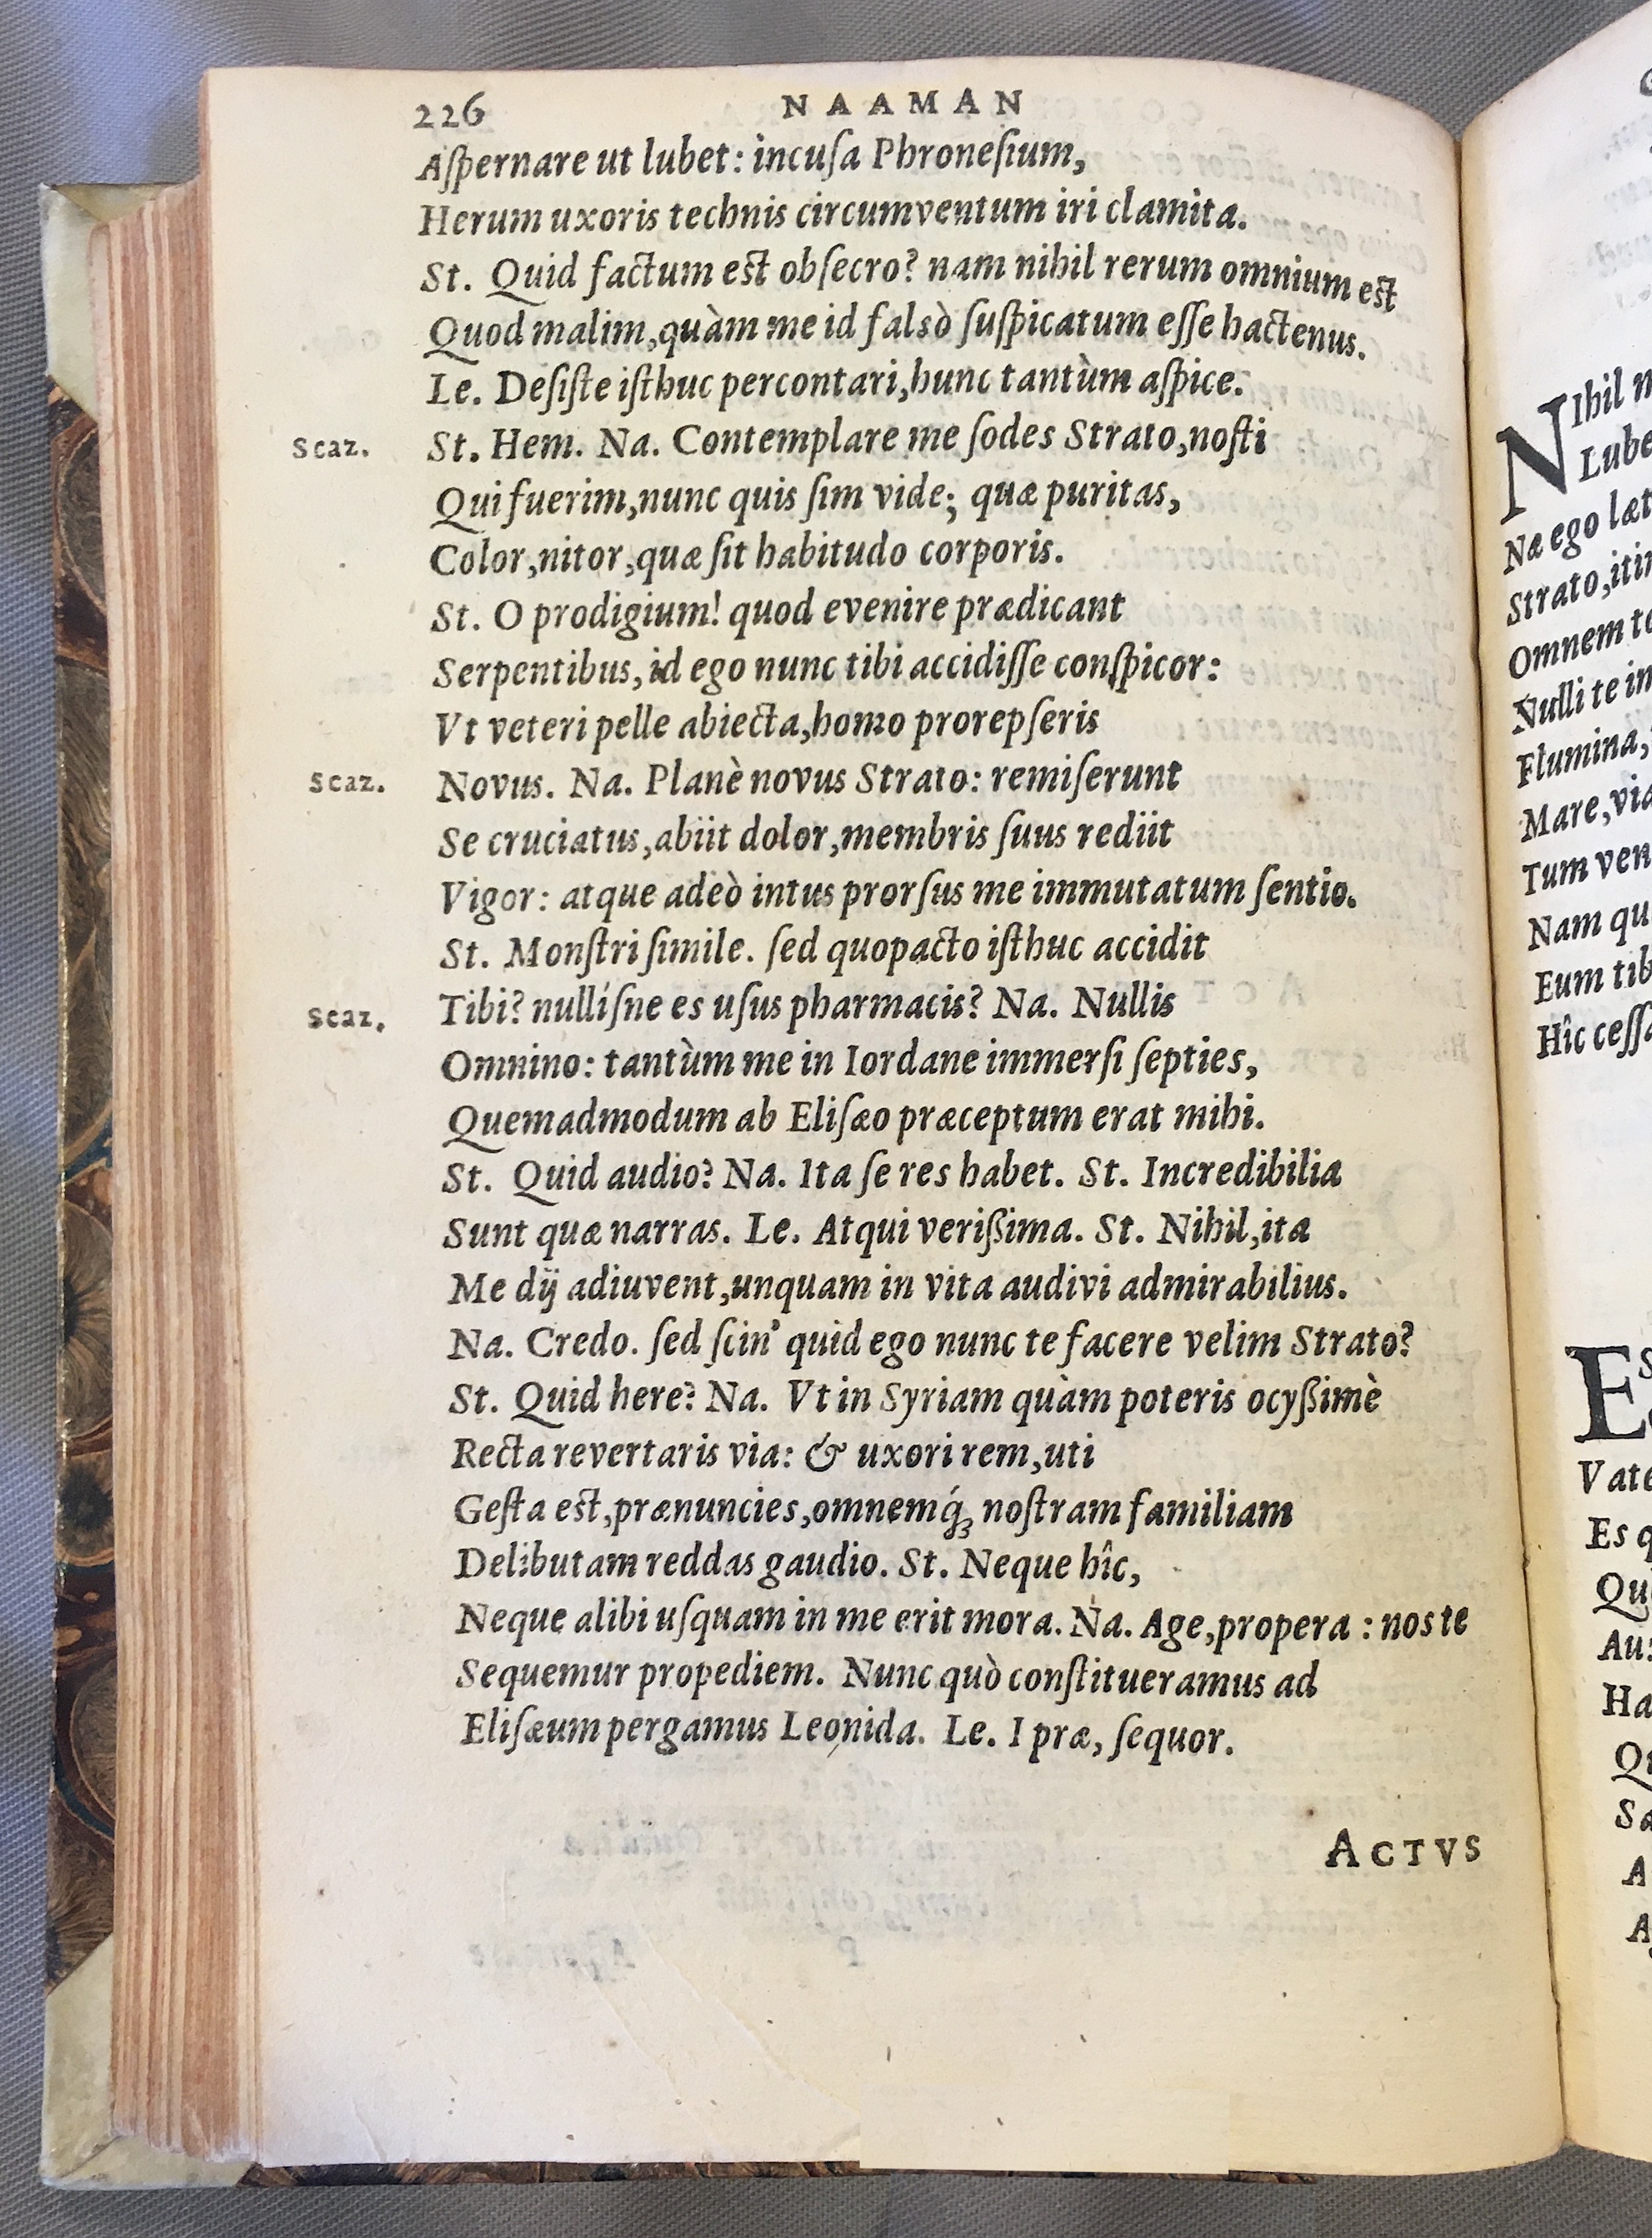 226 NAAMAN
Aſpernare ut lubet: incuſa Phroneſium,
Herum uxoris technis circumventum iri clamita.
St. Quid factum est obſecro? nam nihil rerum omnium est
Quod malim, quàm me id falsò ſuſpicatum eſſe hactenus.
Le. Deſiſte iſthuc percontari, hunc tantùm aſpice.
Scaz. St. Hem. Na. Contemplare me ſodes Strato, noſti
Qui fuerim, nunc quis ſim vide; quæ puritas,
Color, nitor, quæ ſit habitudo corporis.
St. O prodigium! quod evenire prædicant
Serpentibus, id ego nunc tibi accidiſſe conſpicor:
Vt veteri pelle abiecta, homo prorepſeris
Scaz. Novus. Na. Planè novus Strato: remiſerunt
Se cruciatus, abiit dolor, membris ſuus rediit
Vigor: atque adeò intus prorſus me immutatum ſentio.
St. Monſtri ſimile. ſed quopacto iſthuc accidit
Scaz. Tibi? nullíſne es uſus pharmacis? Na. Nullis
Omnino: tantùm me in Iordane immerſi ſepties,
Quemadmodum ab Eliſæo præceptum erat mihi.
St. Quid audio? Na. Ita ſe res habet. St. Incredibilia
Sunt quæ narras. Le. Atqui verißima. St. Nihil, ita
Me dij adiuvent, unquam in vita audivi admirabilius.
Na. Credo. ſed ſcin' quid ego nunc te facere velim Strato?
St. Quid here? Na. Vt in Syriam quàm poteris ocyßimè
Recta revertaris via: & uxori rem, uti
Geſta est, prænuncies, omnemq́ꝫ noſtram familiam
Delibutam reddas gaudio. St. Neque hîc,
Neque alibi uſquam in me erit mora. Na. Age, propera : nos te
Sequemur propediem. Nunc quò conſtitueramus ad
Eliſæum pergamus Leonida. Le. I præ, ſequor.
ACTVS
NIhil
Lube
Næ ego læt
Strato, itin
Omnem
Nulli te
Flumina,
Mare, via
Tum ven
Nam qu
Eum tib
Hîc ceſſa
ES
Vate
Es q
Qu
Au
Ha
Qu
Sa
A
A